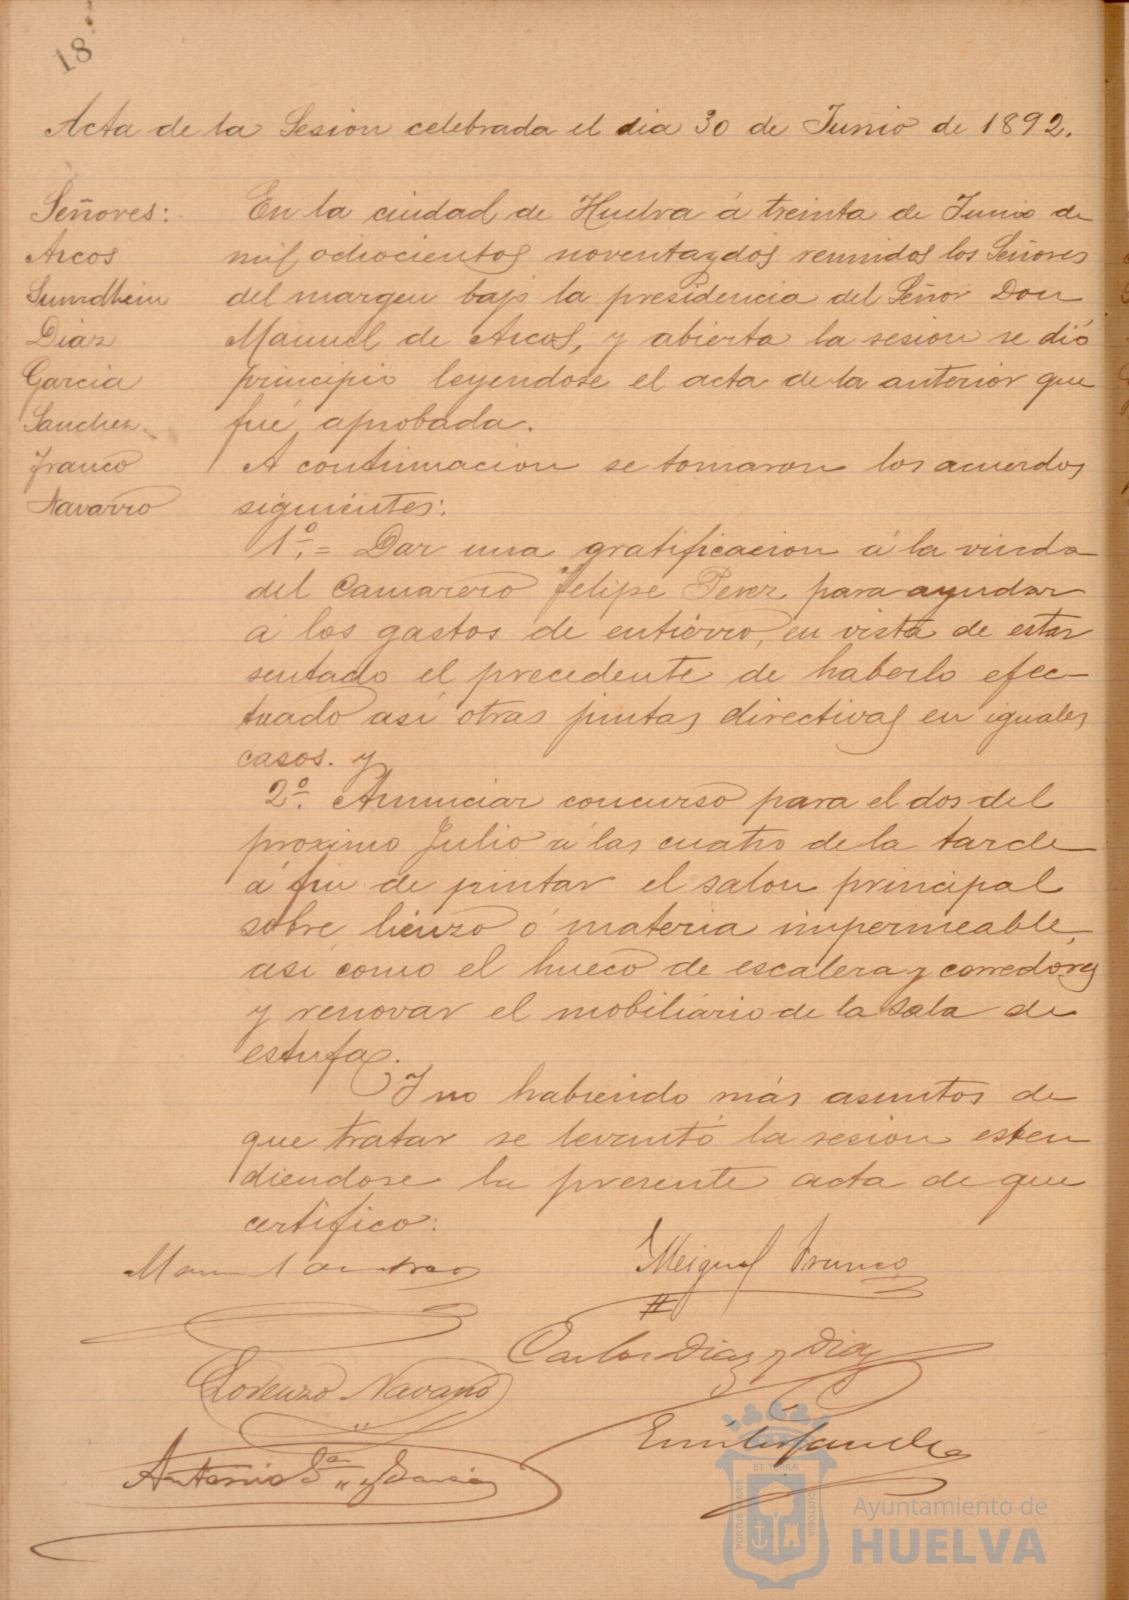 18
Acta de la Sesion celebrada el dia 30 de Junio de 1892.
Señores:
Arcos
Sundheim
Diaz
Garcia
Sanchez
Franco
Navarro
En la ciudad de Huelva á treinta de Junio de
mil ochocientos noventaydos reunidos los Señores
del margen bajo la presidencia del Señor Don
Manuel de Arcos, y abierta la sesion se dió
principio leyendose el acta de la anterior que
fué aprobada.
A continuacion se tomaron los acuerdos
siguientes:
1º.= Dar una gratificacion á la viuda
del Camarero Felipe Perez para ayudar
á los gastos de entierro, en vista de estar
sentado el precedente de haberlo efec-
tuado asi otras juntas directivas en iguales
casos. y
2º. Anunciar concurso para el dos del
proximo Julio á las cuatro de la tarde
á fin de pintar el salon principal
sobre lienzo ó materia impermeable,
asi como el hueco de escalera y corredores
y renovar el mobiliario de la sala de
estufa.
Y no habiendo más asuntos de
que tratar se levantó la sesion esten
diendose la presente acta de que
certifico:
Manuel de Arcos
Meiguel Franco
Carlos Diaz y Diaz
Lorenzo Navarro
Emilio Sanchez
Antonio Gª y Garcia
PORTUS MARIS
ET TERRAE
CUSTODIA
Ayuntamiento de
HUELVA